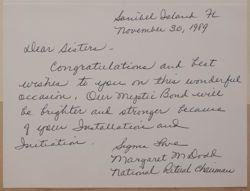 Sanibel Island Fl
November 30, 1989
Dear Sisters -
Congratulations and best
wishes to you on this wonderful
occasion. Our Mystic Bond will
be brighter and stronger because
of your Installation and
Initiation.
Sigma Love
Margaret M Dodd
National Ritual Chairman